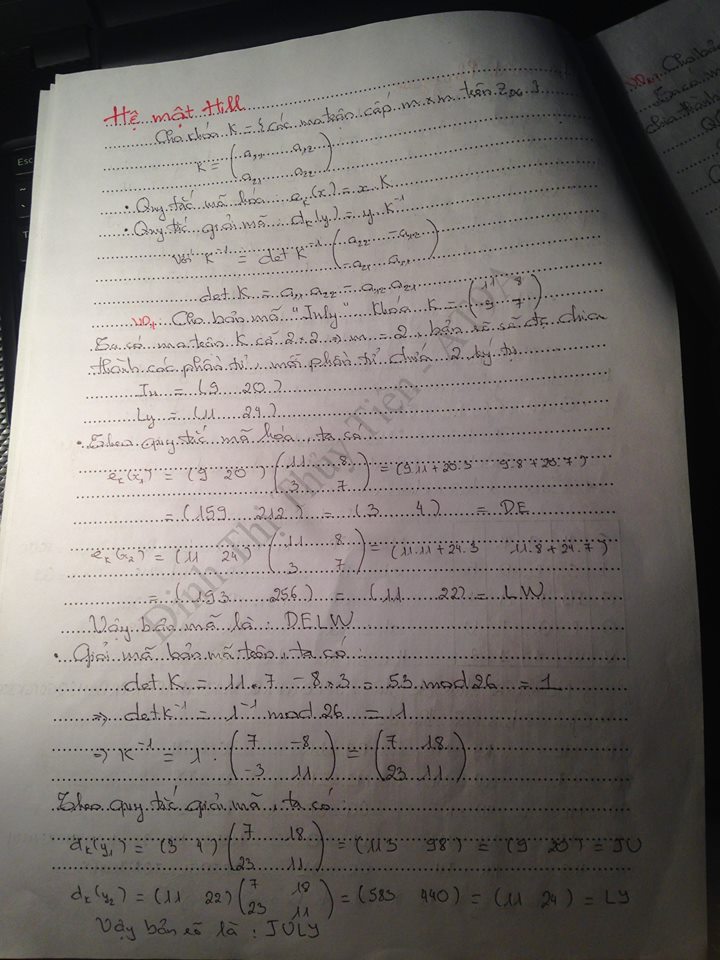 Hệ mật Hill
Cho khóa K = { các ma trận cấp m x m trên Z26 }
K = ( a11 a12
a21 a22 )
• Quy tắc mã hóa ek(x) = x.K
• Quy tắc giải mã dk(y) = y.K^-1
với K^-1 = det K^-1 ( a22 -a12
-a21 a11 )
det K = a11.a22 - a12.a21
VD: Cho bản mã "July" khóa K = ( 11 8
3 7 )
Ta có ma trận K cỡ 2x2 → m = 2, bản rõ sẽ đc chia
thành các phần tử, mỗi phần tử chứa 2 ký tự
Ju = (9 20)
Ly = (11 24)
• Theo quy tắc mã hóa, ta có
ek(x1) = (9 20) ( 11 8
3 7 ) = (9.11+20.3 9.8+20.7)
= (159 212) = (3 4) = DE
ek(x2) = (11 24) ( 11 8
3 7 ) = (11.11+24.3 11.8+24.7)
= (193 256) = (11 22) = LW
Vậy bản mã là : DELW
• Giải mã bản mã trên, ta có :
det K = 11.7 - 8.3 = 53 mod 26 = 1
=> det K^-1 = 1^-1 mod 26 = 1
=> K^-1 = 1 . ( 7 -8
-3 11 ) = ( 7 18
23 11 )
Theo quy tắc giải mã, ta có :
dk(y1) = (3 4) ( 7 18
23 11 ) = (113 98) = (9 20) = JU
dk(y2) = (11 22) ( 7 18
23 11 ) = (583 440) = (11 24) = LY
Vậy bản rõ là : JULY
Đinh Thị Thủy Tiên
Esc